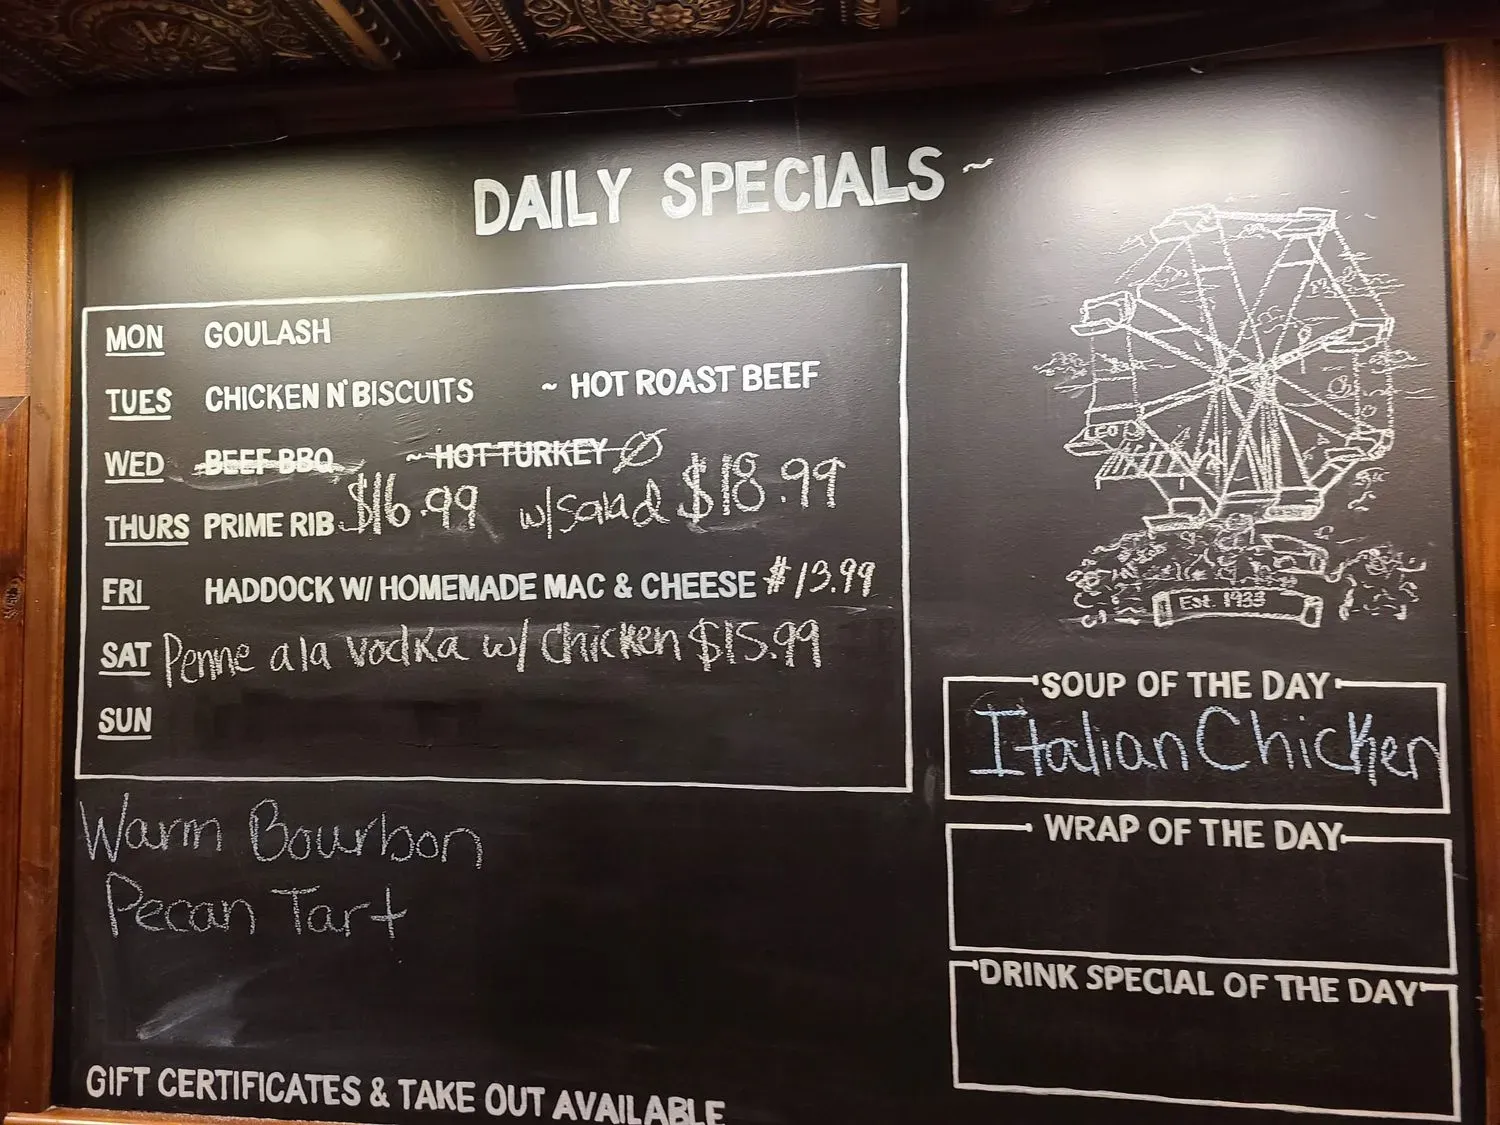 DAILY SPECIALS ~
MON GOULASH
TUES CHICKEN N' BISCUITS ~ HOT ROAST BEEF
WED BEEF BBQ ~ HOT TURKEY
THURS PRIME RIB $16.99 w/salad $18.99
FRI HADDOCK W/ HOMEMADE MAC & CHEESE #13.99
SAT Penne ala vodka w/ Chicken $15.99
SUN
Warm Bourbon
Pecan Tart
GIFT CERTIFICATES & TAKE OUT AVAILABLE
Est. 1933
SOUP OF THE DAY
Italian Chicken
WRAP OF THE DAY
DRINK SPECIAL OF THE DAY